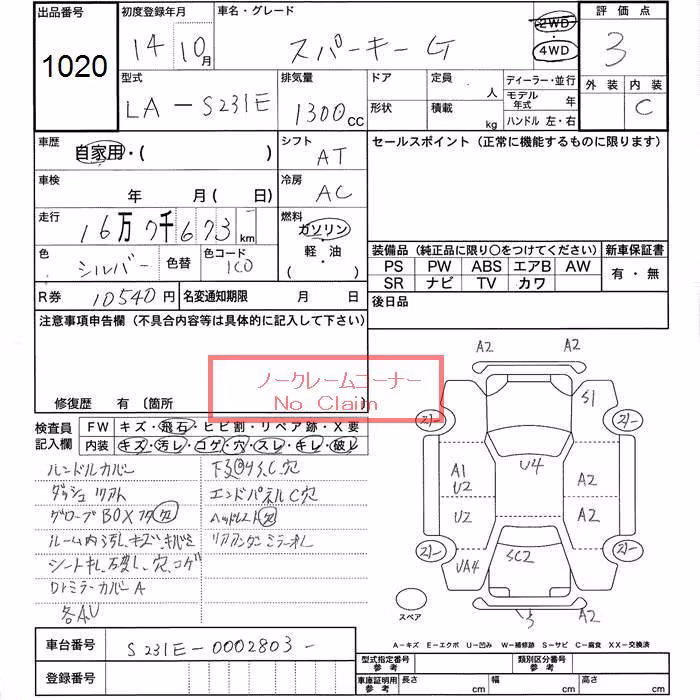 出品番号 初度登録年月 車名・グレード 評価点
1020 14 10月 スパーキー G 2WD 4WD 3
型式 排気量 ドア 定員 人 ディーラー・並行 外装 内装
LA-S231E 1300cc 形状 積載 kg モデル年式 年 C
ハンドル 左・右
車歴 自家用・( ) シフト AT セールスポイント(正常に機能するものに限ります)
車検 年 月( 日) 冷房 AC
走行 16万7千673km 燃料 ガソリン・軽油・( )
色 シルバー 色替 色コード 装備品(純正品に限り○をつけてください) 新車保証書
PS PW ABS エアB AW 有・無
SR ナビ TV カワ
R券 10540円 名変通知期限 月 日 後日品
注意事項申告欄(不具合内容等は具体的に記入して下さい)
ノークレームコーナー
No Claim
修復歴 有〔箇所 〕
検査員記入欄 FW キズ・飛石・ヒビ割・リペア跡・X要
内装 キズ・汚レ・コゲ・穴・スレ・キレ・破レ
ハンドルカバー
ダッシュ
グローブBOX 欠
シートキレ、 穴、コゲ
ミラーカバーA
各AU
エンドパネルC穴
ヘッドレスト欠
A2 A2
A2 S1
A1 U2 U4 A2
U2 A2
UA4 SC2
3 A2
スペア
A-キズ E-エクボ U-凹み W-補修跡 S-サビ C-腐食 XX-交換済
車台番号 S231E-0002803-
登録番号
型式指定番号 参考 類別区分番号 参考
車庫証明用 参考 長さ cm 幅 cm 高さ cm